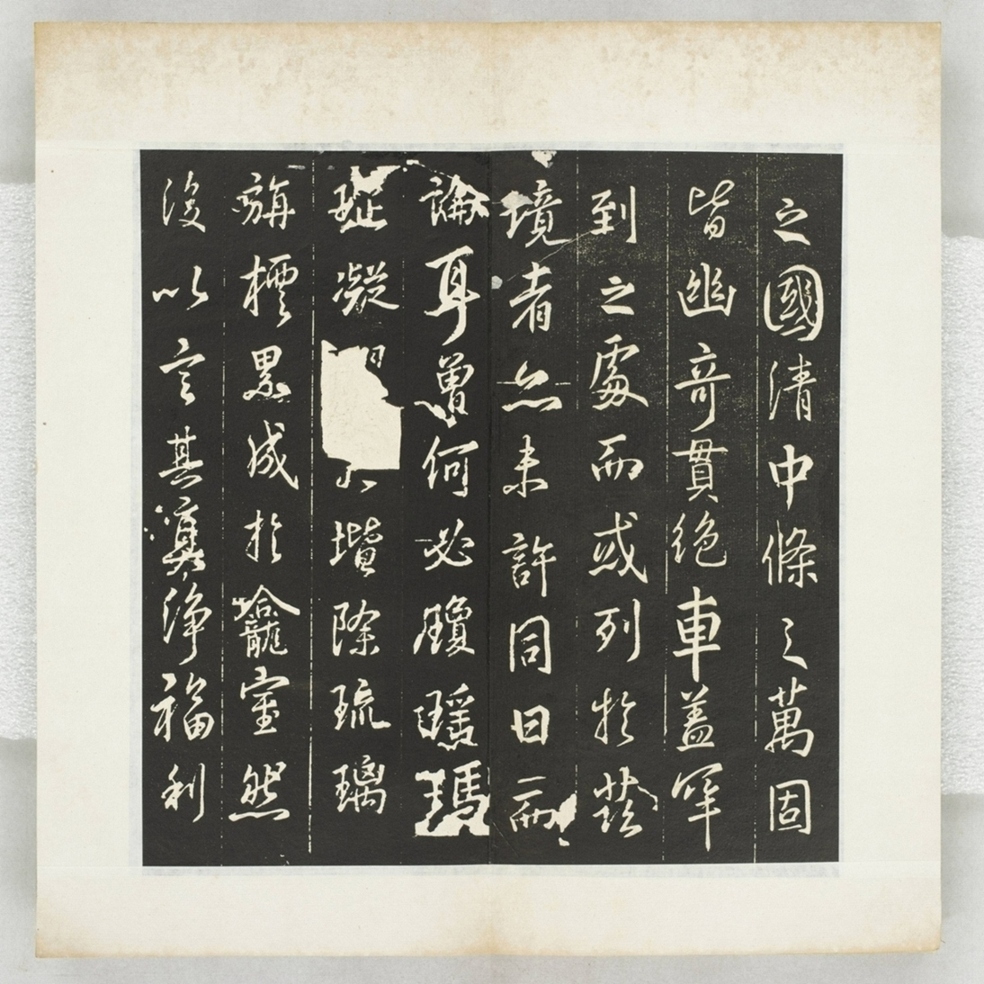 之國清中條之萬固
皆幽奇貫絕車蓋罕
到之處而或列於
境者亦未許同日而
論耳曽何必瓊瑤瑪
砌凝
堦除琉璃
旃檀累成於龕室然
後以言其真淨福利